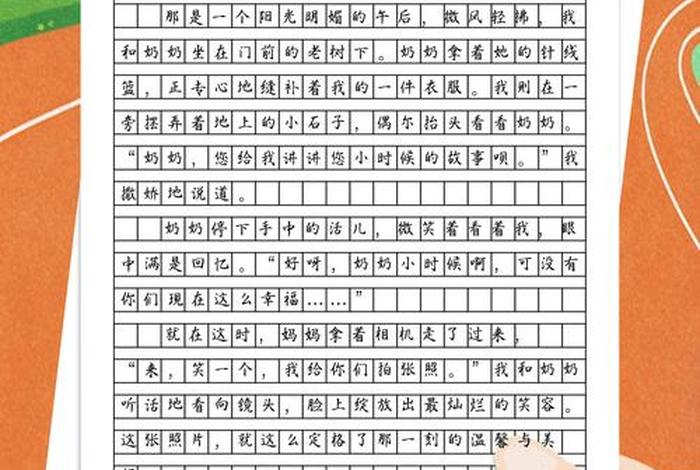 那是一个阳光明媚的午后，微风轻拂，我
和奶奶坐在门前的老树下。奶奶拿着她的针线
篮，正专心地缝补着我的一件衣服。我则在一
旁摆弄着地上的小石子，偶尔抬头看看奶奶。
“奶奶，您给我讲讲您小时候的故事呗。”我
撒娇地说道。
奶奶停下手中的活儿，微笑着看着我，眼
中满是回忆。“好呀，奶奶小时候啊，可没有
你们现在这么幸福……”
就在这时，妈妈拿着相机走了过来，
“来，笑一个，我给你们拍张照。”我和奶奶
听话地看向镜头，脸上绽放出最灿烂的笑容。
这张照片，就这么定格了那一刻的温馨与美